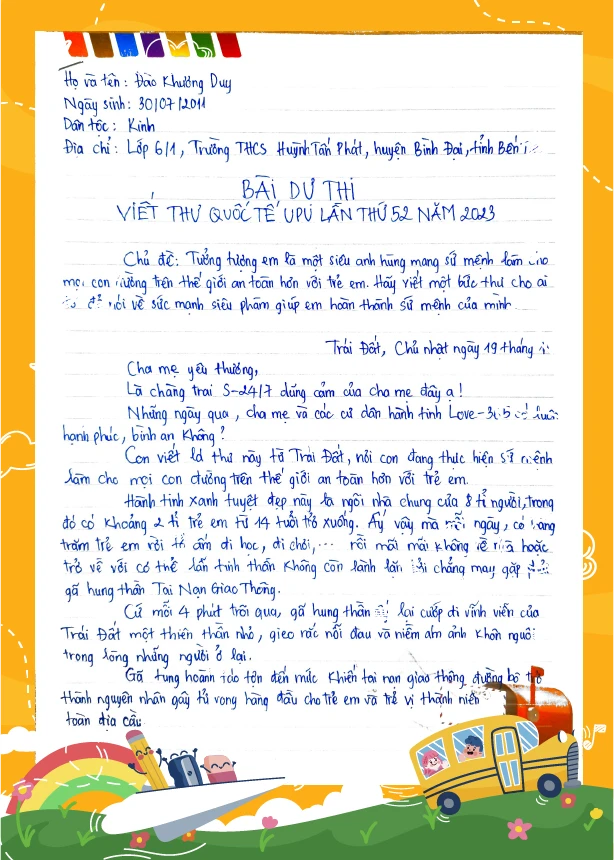 Họ và tên: Đào Khương Duy
Ngày sinh: 30/07/2011
Dân tộc: Kinh
Địa chỉ: Lớp 6/1, Trường THCS Huỳnh Tấn Phát, huyện Bình Đại, tỉnh Bến
BÀI DỰ THI
VIẾT THƯ QUỐC TẾ UPU LẦN THỨ 52 NĂM 2023
Chủ đề: Tưởng tượng em là một siêu anh hùng mang sứ mệnh làm cho
mọi con đường trên thế giới an toàn hơn với trẻ em. Hãy viết một bức thư cho ai
đó để nói về sức mạnh siêu phàm giúp em hoàn thành sứ mệnh của mình
Trái Đất, Chủ nhật ngày 19 tháng
Cha mẹ yêu thương,
Là chàng trai S-24/7 dũng cảm của cha mẹ đây ạ!
Những ngày qua, cha mẹ và các cư dân hành tinh Love-365 có luôn
hạnh phúc, bình an không?
Con viết lá thư này từ Trái Đất, nơi con đang thực hiện sứ mệnh
làm cho mọi con đường trên thế giới an toàn hơn với trẻ em.
Hành tinh xanh tuyệt đẹp này là ngôi nhà chung của 8 tỉ người, trong
đó có khoảng 2 tỉ trẻ em từ 14 tuổi trở xuống. Ấy vậy mà mỗi ngày, có hàng
trăm trẻ em rời tổ ấm đi học, đi chơi,... rồi mãi mãi không về nữa hoặc
trở về với cơ thể lẫn tinh thần không còn lành lặn bởi chẳng may gặp phải
gã hung thần Tai Nạn Giao Thông.
Cứ mỗi 4 phút trôi qua, gã hung thần ấy lại cướp đi vĩnh viễn của
Trái Đất một thiên thần nhỏ, gieo rắc nỗi đau và niềm ám ảnh khôn nguôi
trong lòng những người ở lại.
Gã tung hoành táo tợn đến mức khiến tai nạn giao thông đường bộ trở
thành nguyên nhân gây tử vong hàng đầu cho trẻ em và trẻ vị thành niên
toàn địa cầu